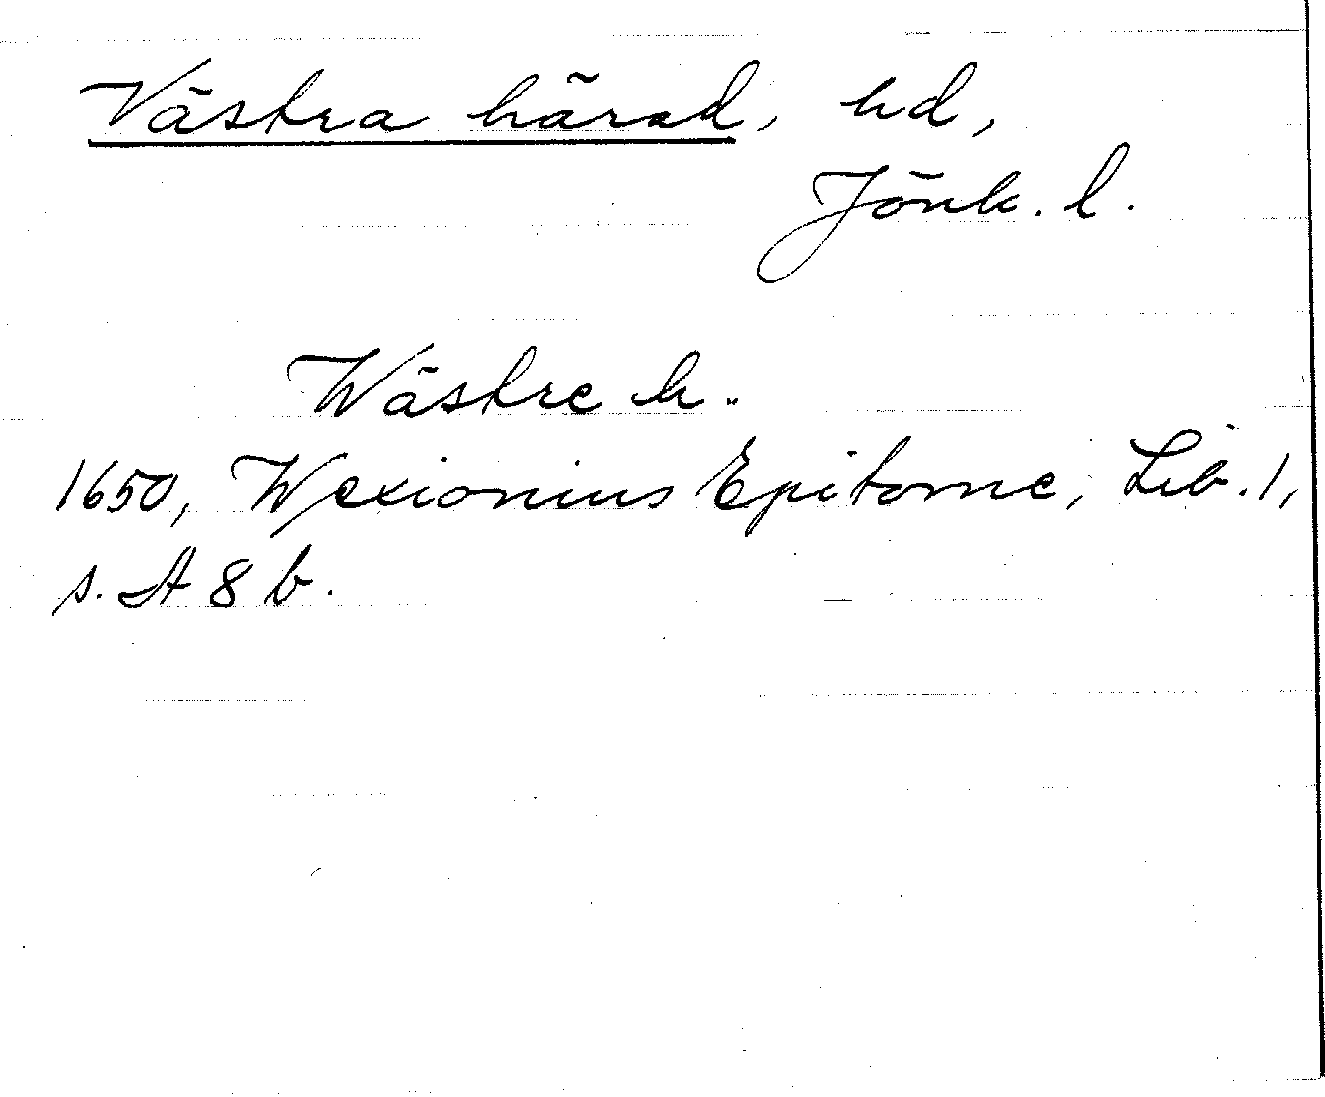 Västra härad, hd,
Jönk. l.
Wästre h..
1650, Wexionius Epitome, Lib. 1,
s. A 8 b.